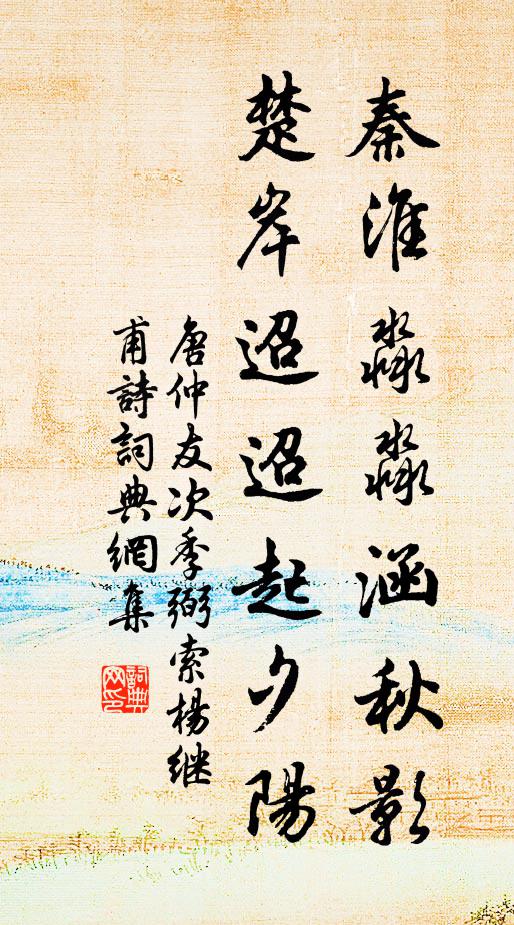 秦淮淼淼涵秋影
楚岸迢迢起夕陽
唐仲友次季弼索楊继
甫詩詞典網集
詞典
网印